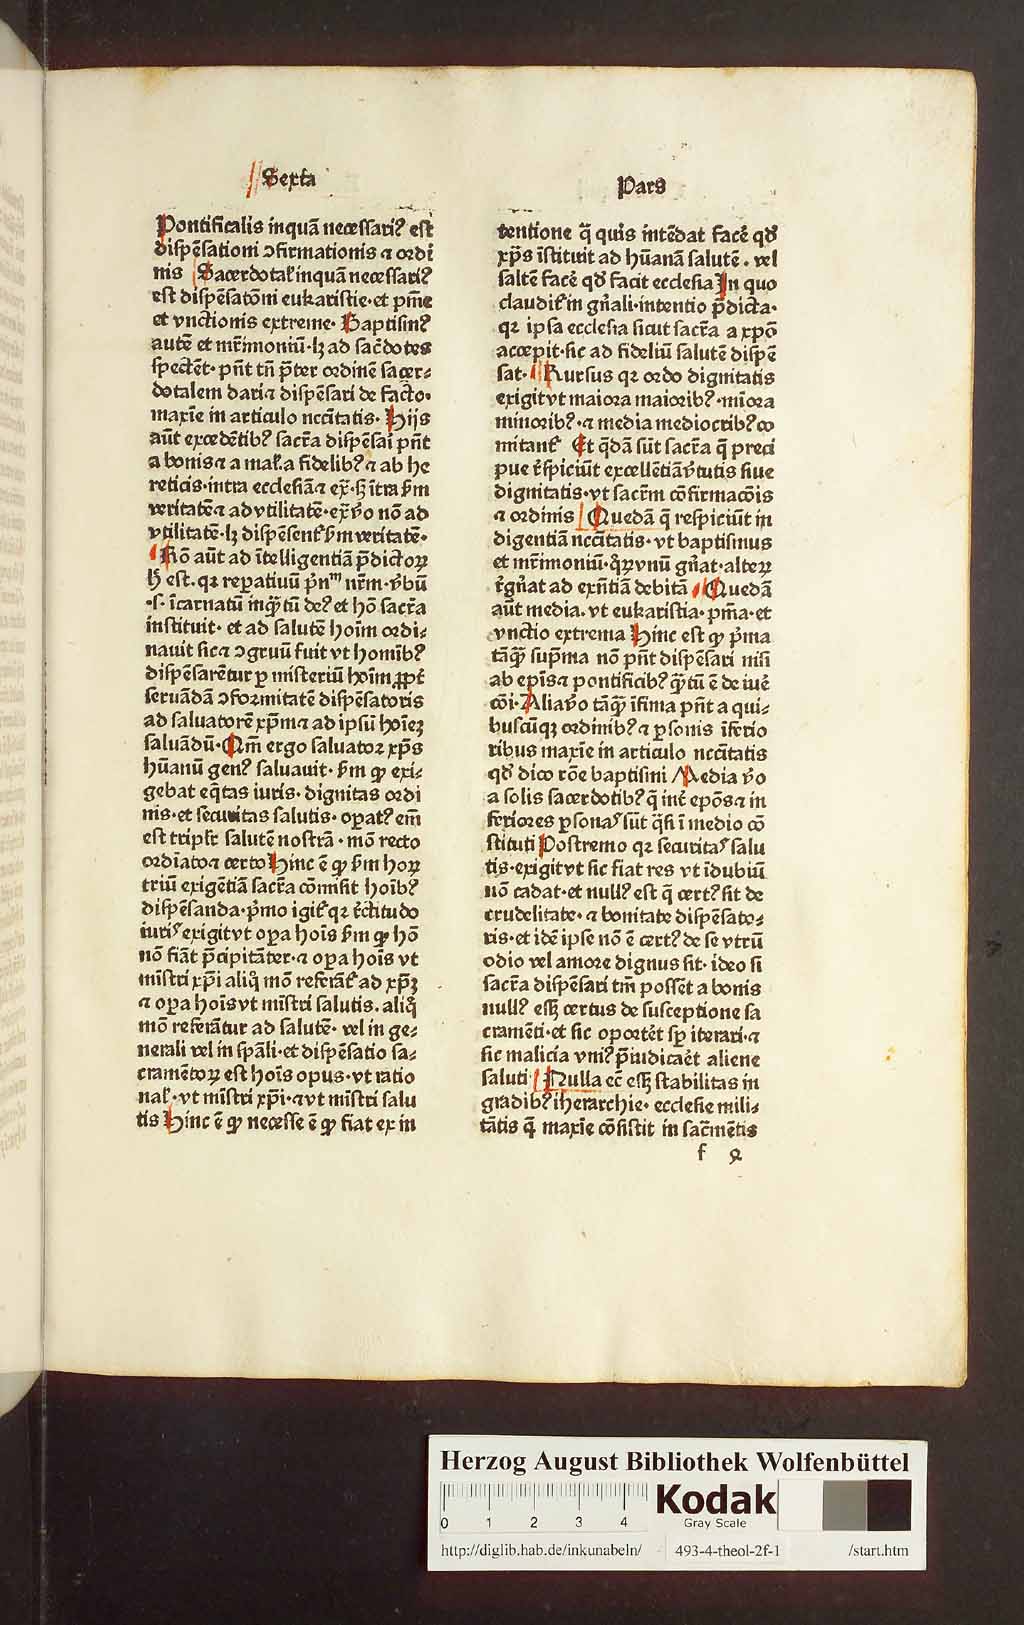 Sexta
Pontificalis inquā necessari⁹ est
dispēsationi ↄfirmationis ⁊ ordi
nis Sacerdotal' inquā necessari⁹
est dispēsatōni eukaristie· et pn̄ie
et vnctionis extreme· Baptism⁹
autē et mr̄imoniū· lꝫ ad sac̄dotes
spectēt· pn̄t tn̄ p̄ter ordinē sacer-
dotalem dari ⁊ dispēsari de facto·
maxīe in articulo nccītatis· Hijs
aūt excedētib⁹ sacr̄a dispēsai pn̄t
a bonis ⁊ a mal'a fidelib⁹ ⁊ ab he
reticis· intra ecclesiā ⁊ ex̄· sꝫ ītra s̄m
veritatē ⁊ ad vtilitatē· ex̄ v̄o nō ad
vtilitatē· lꝫ dispēsent' s̄m veritatē·
Rō aūt ad ītelligentiā p̄dictoꝝ
h̄ est. qꝛ reꝑatiuū pr̄n^m nr̄m· v̄bū
·s· īcarnatū inqͣ̄tū de⁹ et hō sacr̄a
instituit· et ad salutē hoīm ordi-
nauit sic ⁊ ↄgruū fuit vt homīb⁹
dispēsarētur ꝑ misteriū hoīm ꝓpt'
seruādā ↄformitatē dispēsatoris
ad saluatorē xp̄m ⁊ ad ipsū hoīeꝫ
saluādū· Qm̄ ergo saluator xp̄s
hūanū gen⁹ saluauit· s̄m ꝙ exi-
gebat eq̄tas iuris· dignitas ordi
nis· et securitas salutis· oꝑat⁹ em̄
est triplr̄ salutē nostrā· mō recto
ordīato ⁊ certo Hinc ē ꝙ s̄m hoꝝ
triū exigētiā sacr̄a cōmisit hoīb⁹
dispēsanda· p̄mo igit' qꝛ r̄ctitudo
iuris exigit vt oꝑa hoīs s̄m ꝙ hō
nō fiāt p̄cipitāter· ⁊ oꝑa hoīs vt
mīstri xp̄i aliq̊ mō referāt' ad xp̄ꝫ
⁊ oꝑa hoīs vt mīstri salutis. aliq̊
mō referātur ad salutē· vel in ge-
nerali vel in sp̄ali· et dispēsatio sa-
cramētoꝝ est hoīs opus· vt ratio
nal'· vt mīstri xp̄i· ⁊ vt mīstri salu
tis Hinc ē ꝙ necesse ē ꝙ fiat ex in
Pars
tentione q̄ quis intēdat facē qd̄
xp̄s īstituit ad hūanā salutē. vel
saltē facē qd̄ facit ecclesia In quo
claudit' in gn̄ali· intentio p̄dicta·
qꝛ ipsa ecclesia sicut sacr̄a a xp̄o
accepit· sic ad fideliū salutē dispē
sat· Rursus qꝛ ordo dignitatis
exigit vt maiora maiorib⁹· mīora
minorib⁹· ⁊ media mediocrib⁹ co
mitant' Et q̄dā sūt sacr̄a q̄ preci
pue r̄spiciūt excellētiā v̄tutis siue
dignitatis· vt sacr̄m cōfirmacōis
⁊ ordinis Quedā q̄ respiciūt in
digentiā nccītatis· vt baptismus
et mr̄imoniū· q̊ꝝ vnū gn̄at· alterꝝ
r̄gn̄at ad exn̄tiā debitā Quedā
aūt media. vt eukaristia· pn̄ia· et
vnctio extrema Hinc est ꝙ p̄ma
tāqͣ̄ sup̄ma nō pn̄t dispēsari nisi
ab ep̄is ⁊ pontificib⁹ qͣ̄tū ē de iue̾
cōi· Alia v̄o tāqͣ̄ īfima pn̄t a qui-
buscūqꝫ ordinib⁹ ⁊ ꝑsonis īferio
ribus maxīe in articulo nccītatis
qd̄ dico rōe baptismi Media v̄o
a solis sacerdotib⁹ q̄ int' ep̄os ⁊ in
feriores ꝑsonas sūt q̄si ī medio cō
stituti Postremo qꝛ securitas salu
tis· exigit vt sic fiat res vt īdubiū
nō cadat· et null⁹ est q̄ cert⁹ sit de
crudelitate· ⁊ bonitate dispēsato-
ris· et idē ipse nō ē cert⁹ de se vtrū
odio vel amore dignus sit· ideo si
sacr̄a dispēsari tm̄ possēt a bonis
null⁹ esꝫ certus de susceptione sa
cramēti· et sic oportet sp̄ iterari· ⁊
sic malicia vni⁹ p̄iudicaēt aliene
saluti Nulla ec̄ esꝫ stabilitas in
gradib⁹ iherarchie· ecclesie mili-
tātis q̄ maxīe cōsistit in sac̄mētis
f 2
Herzog August Bibliothek Wolfenbüttel
0 1 2 3 4
Kodak
Gray Scale
http://diglib.hab.de/inkunabeln/ 493-4-theol-2f-1 /start.htm